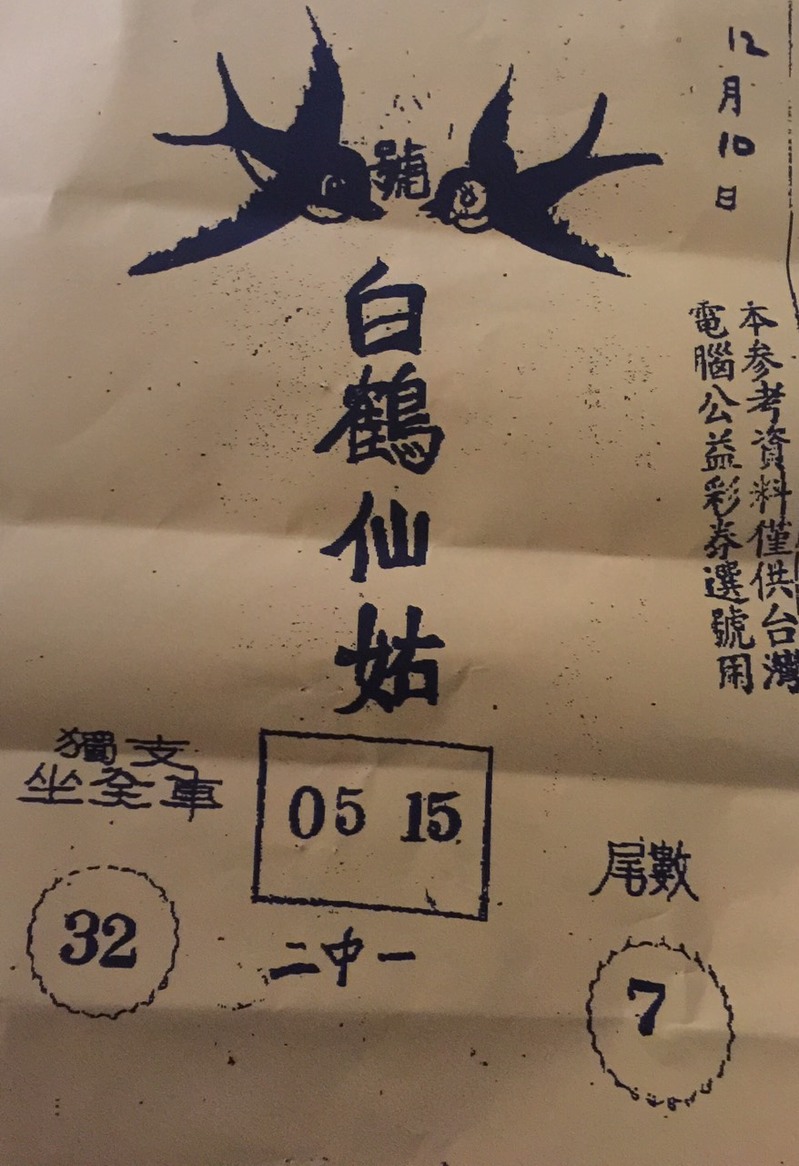 12月10日
本参考資料僅供台灣
電腦公益彩券選號用
號
白鶴仙姑
獨支
坐全車
32
05 15
二中一
尾數
7